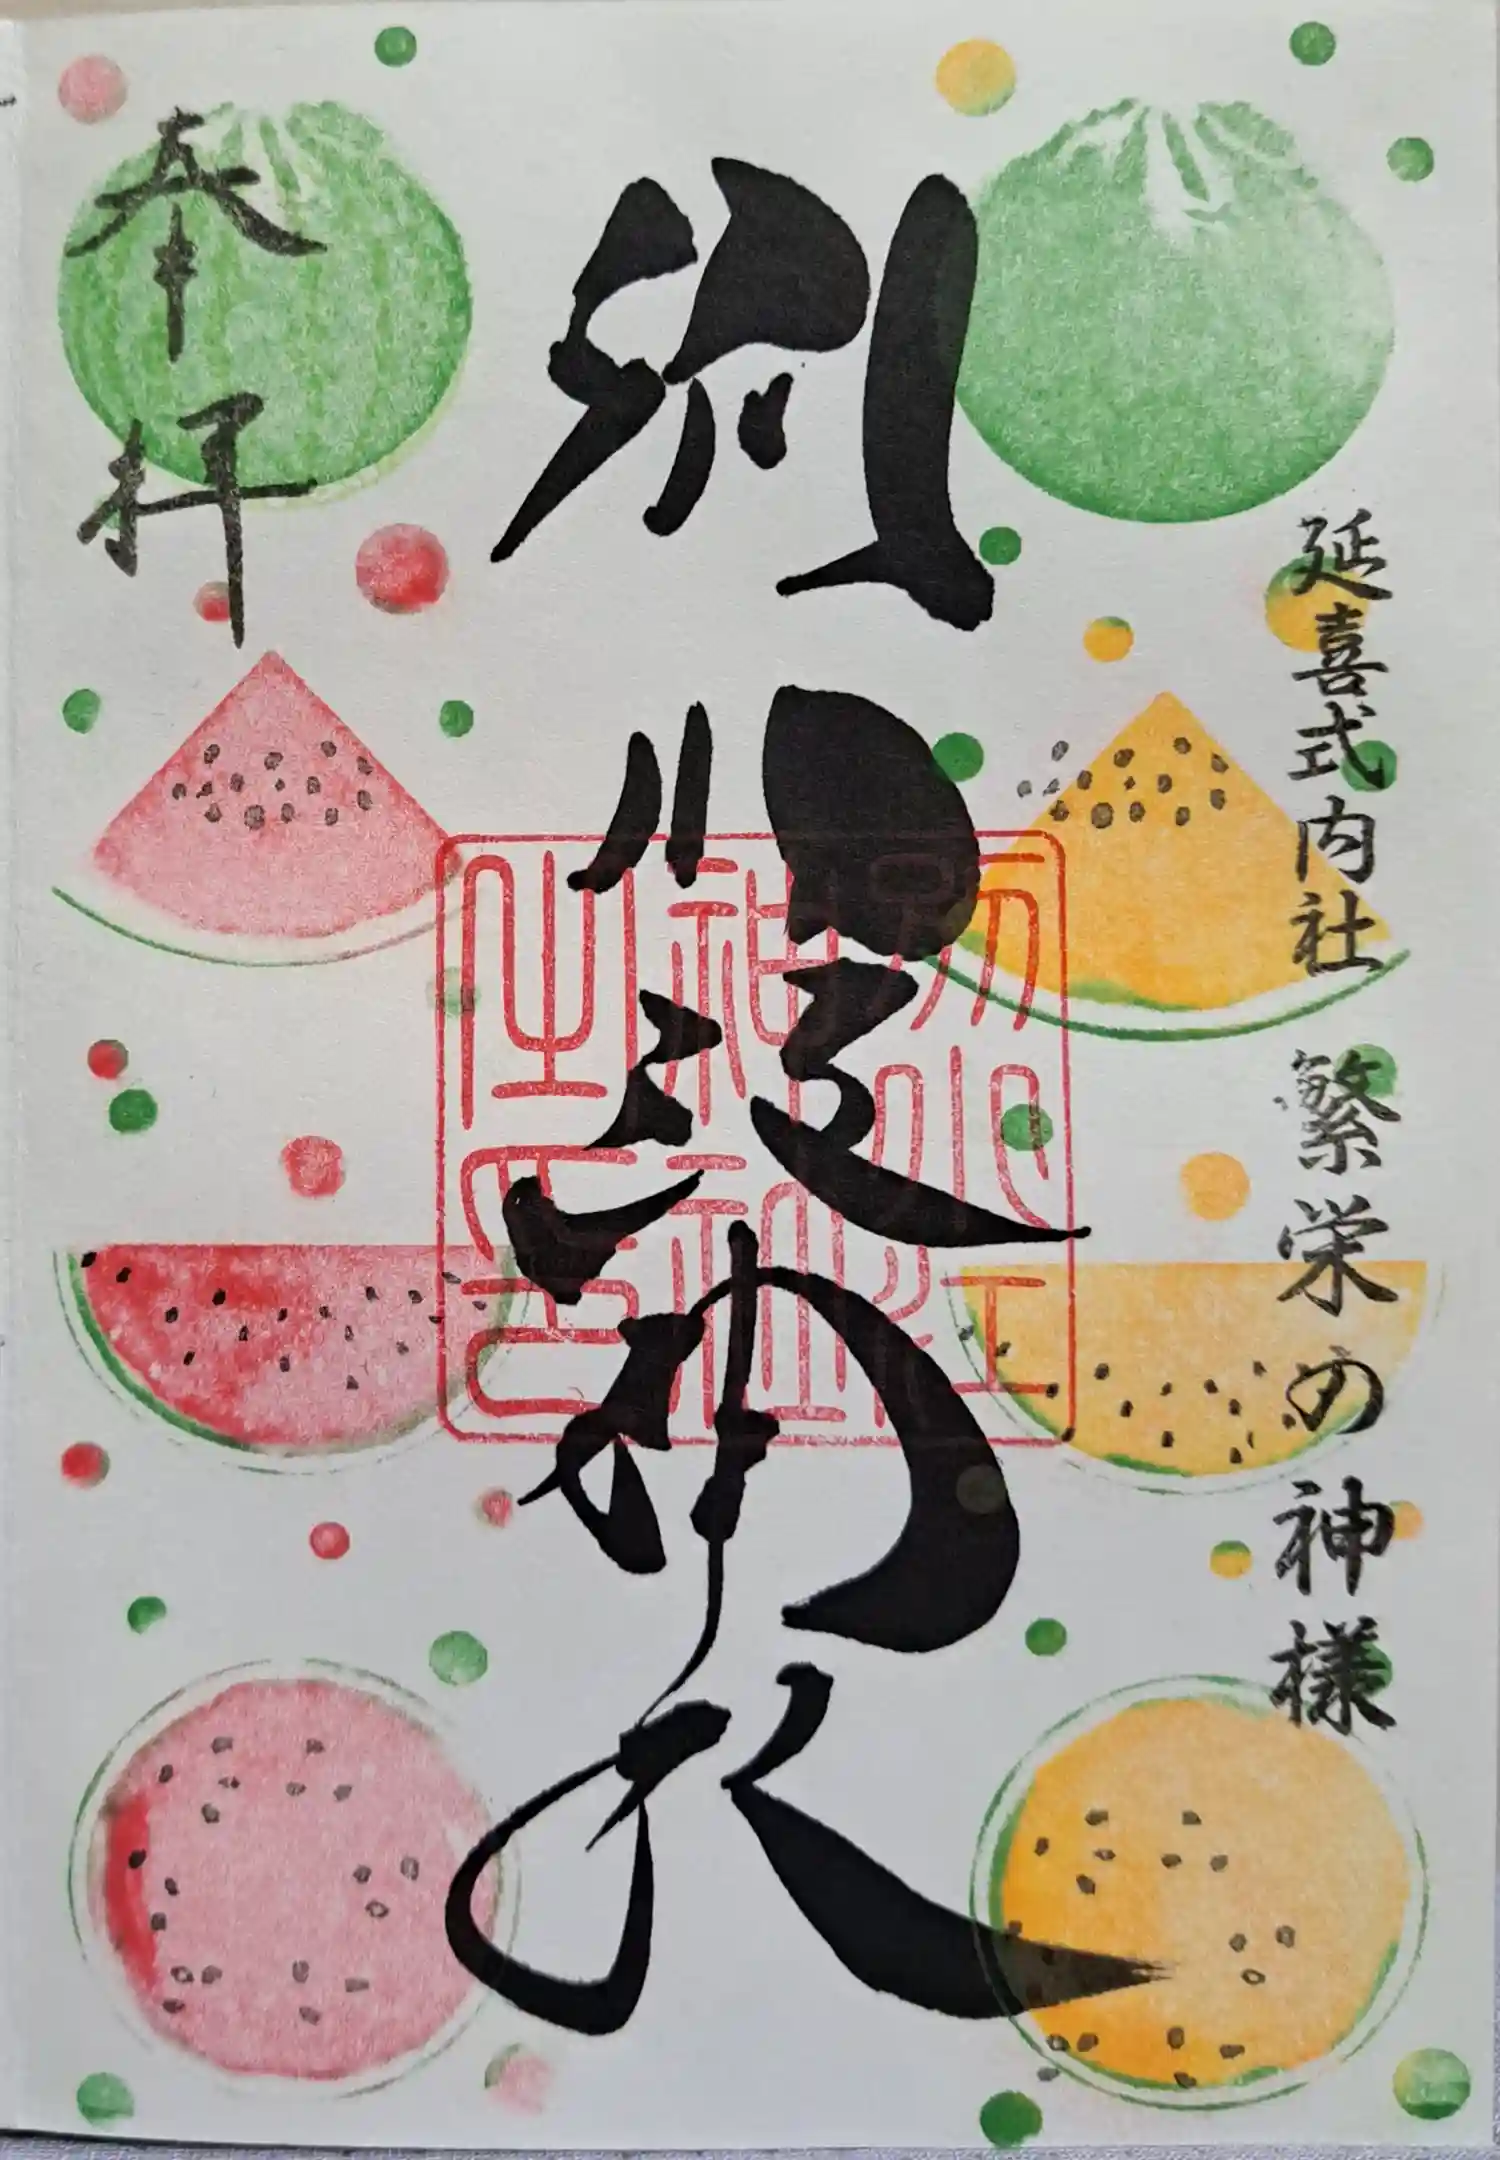 延喜式内社 繁栄の神様
別小江神社
別小江
神社
之印
奉拝